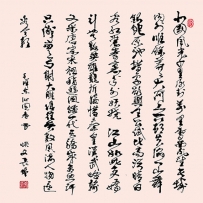 北国风光千里冰封万里雪飘望长城
内外惟余莽莽大河上下顿失滔滔山舞
银蛇原驰蜡象欲与天公试比高须晴日
看红装素裹分外妖娆江山如此多娇
引无数英雄竞折腰惜秦皇汉武略输
文采唐宗宋祖稍逊风骚一代天骄成吉思汗
只识弯弓射大雕俱往矣数风流人物还
看今朝
毛泽东沁园春雪